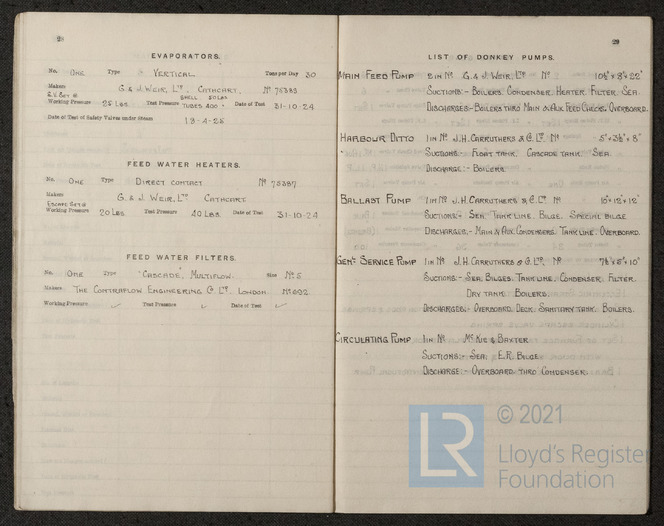 28
EVAPORATORS.
No. ONE Type VERTICAL Tons per Day 30
Makers G & J. WEIR, LTD, CATHCART. No 75383
Working Pressure 25 LBS Test Pressure SHELL 50 LBS TUBES 400 Date of Test 31-10-24
Date of Test of Safety Valves under Steam 13-4-25
FEED WATER HEATERS.
No. ONE Type DIRECT CONTACT No 75387
Makers G. & J. WEIR, LTD CATHCART
ESCAPE SET @
Working Pressure 20 LBS Test Pressure 40 LBS. Date of Test 31-10-24
FEED WATER FILTERS.
No. ONE Type "CASCADE", MULTIFLOW. Size No 5
Makers THE CONTRAFLOW ENGINEERING Co LTD. LONDON. No 1892
Working Pressure ✓ Test Pressure ✓ Date of Test ✓
29
LIST OF DONKEY PUMPS.
MAIN FEED PUMP 2 IN No G. & J. WEIR, LTD. No 10½" x 8" x 22"
SUCTIONS:- BOILERS. CONDENSER. HEATER. FILTER. SEA.
DISCHARGES:- BOILERS THRO MAIN & AUX FEED CHECKS. OVERBOARD.
HARBOUR DITTO 1 IN No J.H. CARRUTHERS & Co LTD No 5" x 3½" x 8"
SUCTIONS:- FLOAT TANK. CASCADE TANK. SEA
DISCHARGE:- BOILERS
BALLAST PUMP 1 IN No J.H. CARRUTHERS & Co LTD. No 10" x 12" x 12"
SUCTIONS:- SEA. TANK LINE. BILGE. SPECIAL BILGE
DISCHARGES:- MAIN & AUX CONDENSERS. TANK LINE. OVERBOARD.
GENL SERVICE PUMP 1 IN No J.H. CARRUTHERS & Co LTD. No 7½" x 5" x 10"
SUCTIONS:- SEA. BILGES. TANK LINE. CONDENSER. FILTER.
DRY TANK. BOILERS.
DISCHARGES:- OVERBOARD. DECK. SANITARY TANK. BOILERS.
CIRCULATING PUMP 1 IN No McKIE & BAXTER
SUCTIONS:- SEA. E.R. BILGE
DISCHARGE:- OVERBOARD THRO CONDENSER.
LR
© 2021
Lloyd's Register
Foundation